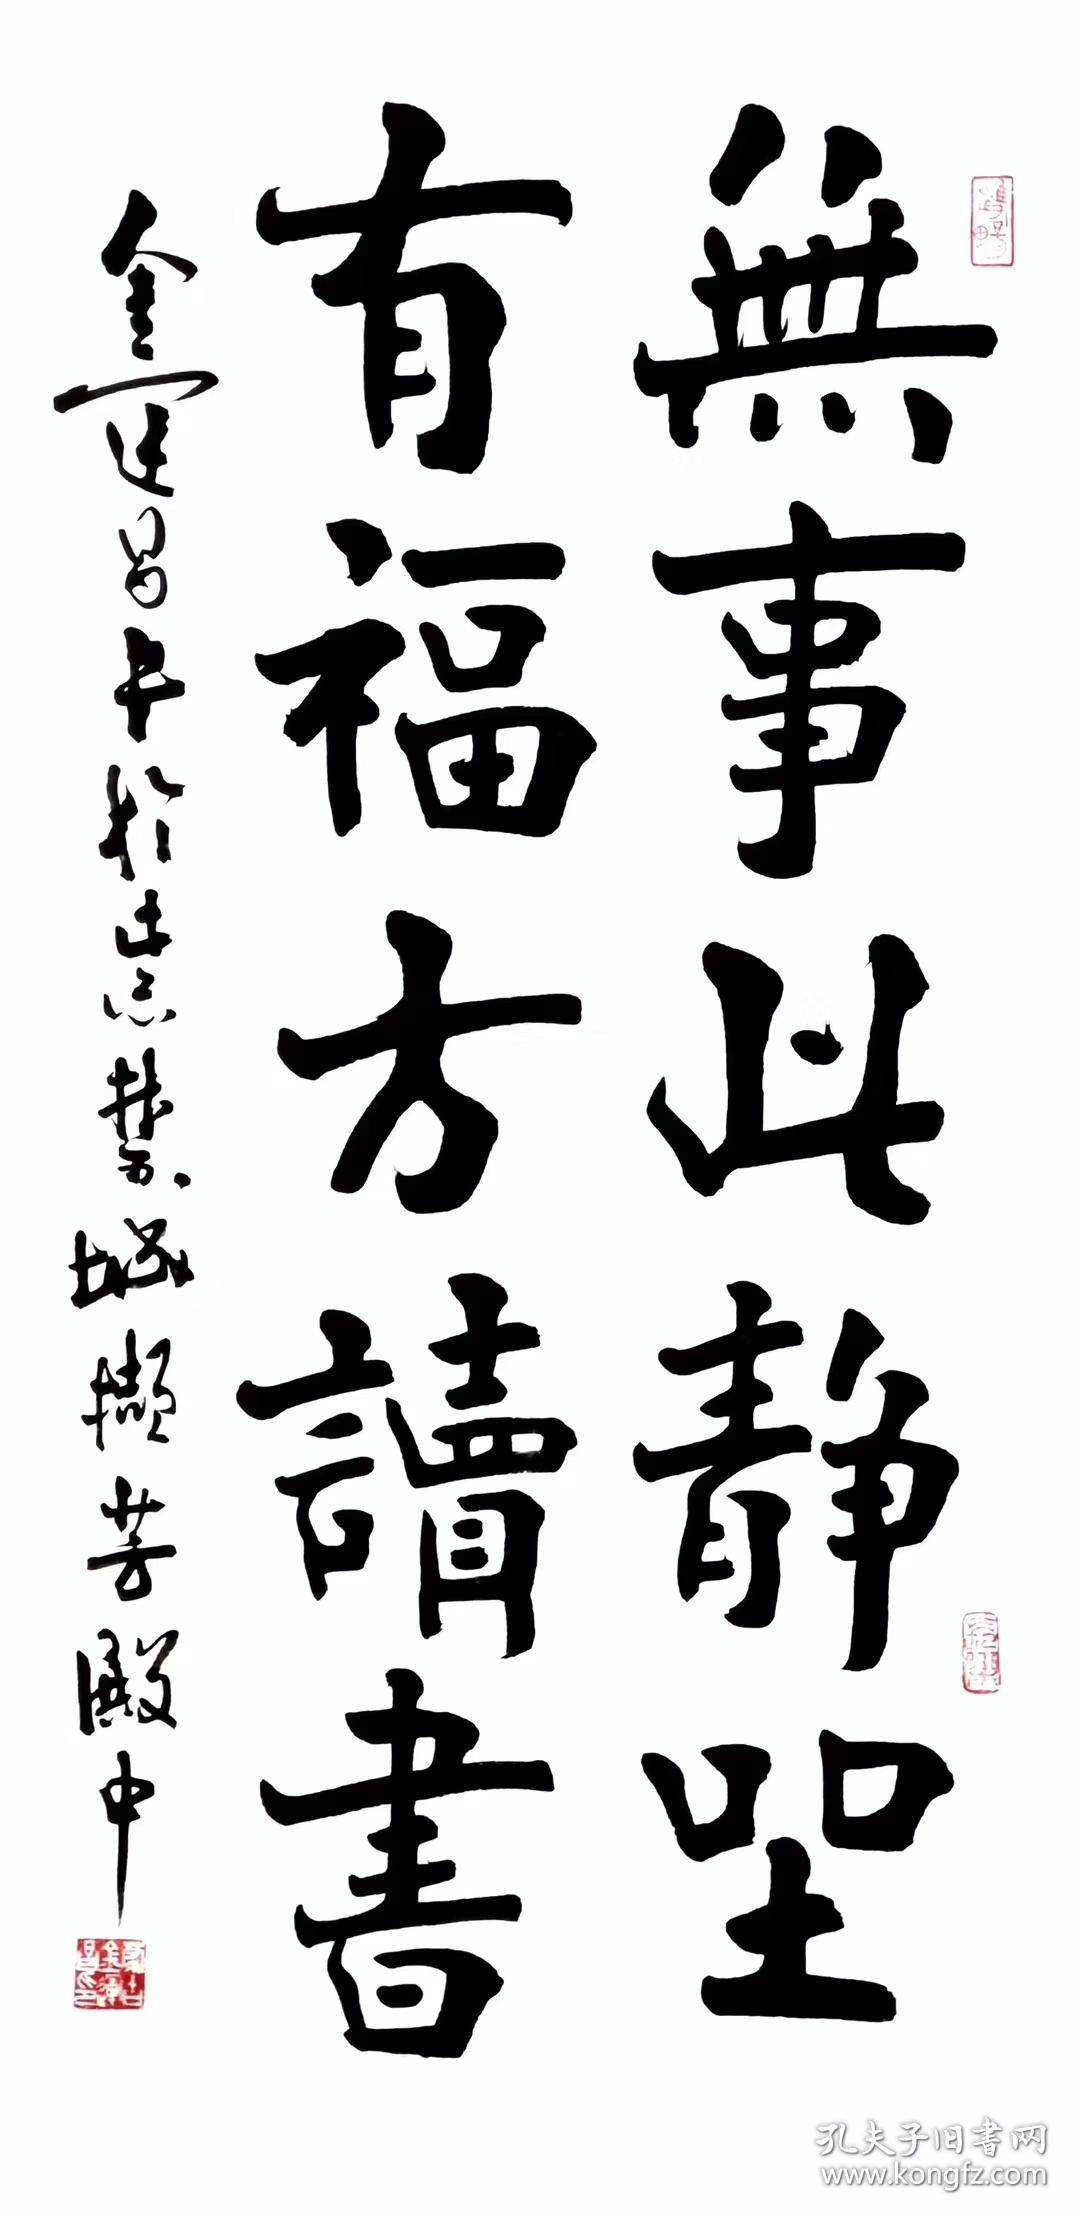 無事此静坐
有福方讀書
金運昌書於紫禁城擷芳殿中
孔夫子旧书网
www.kongfz.com